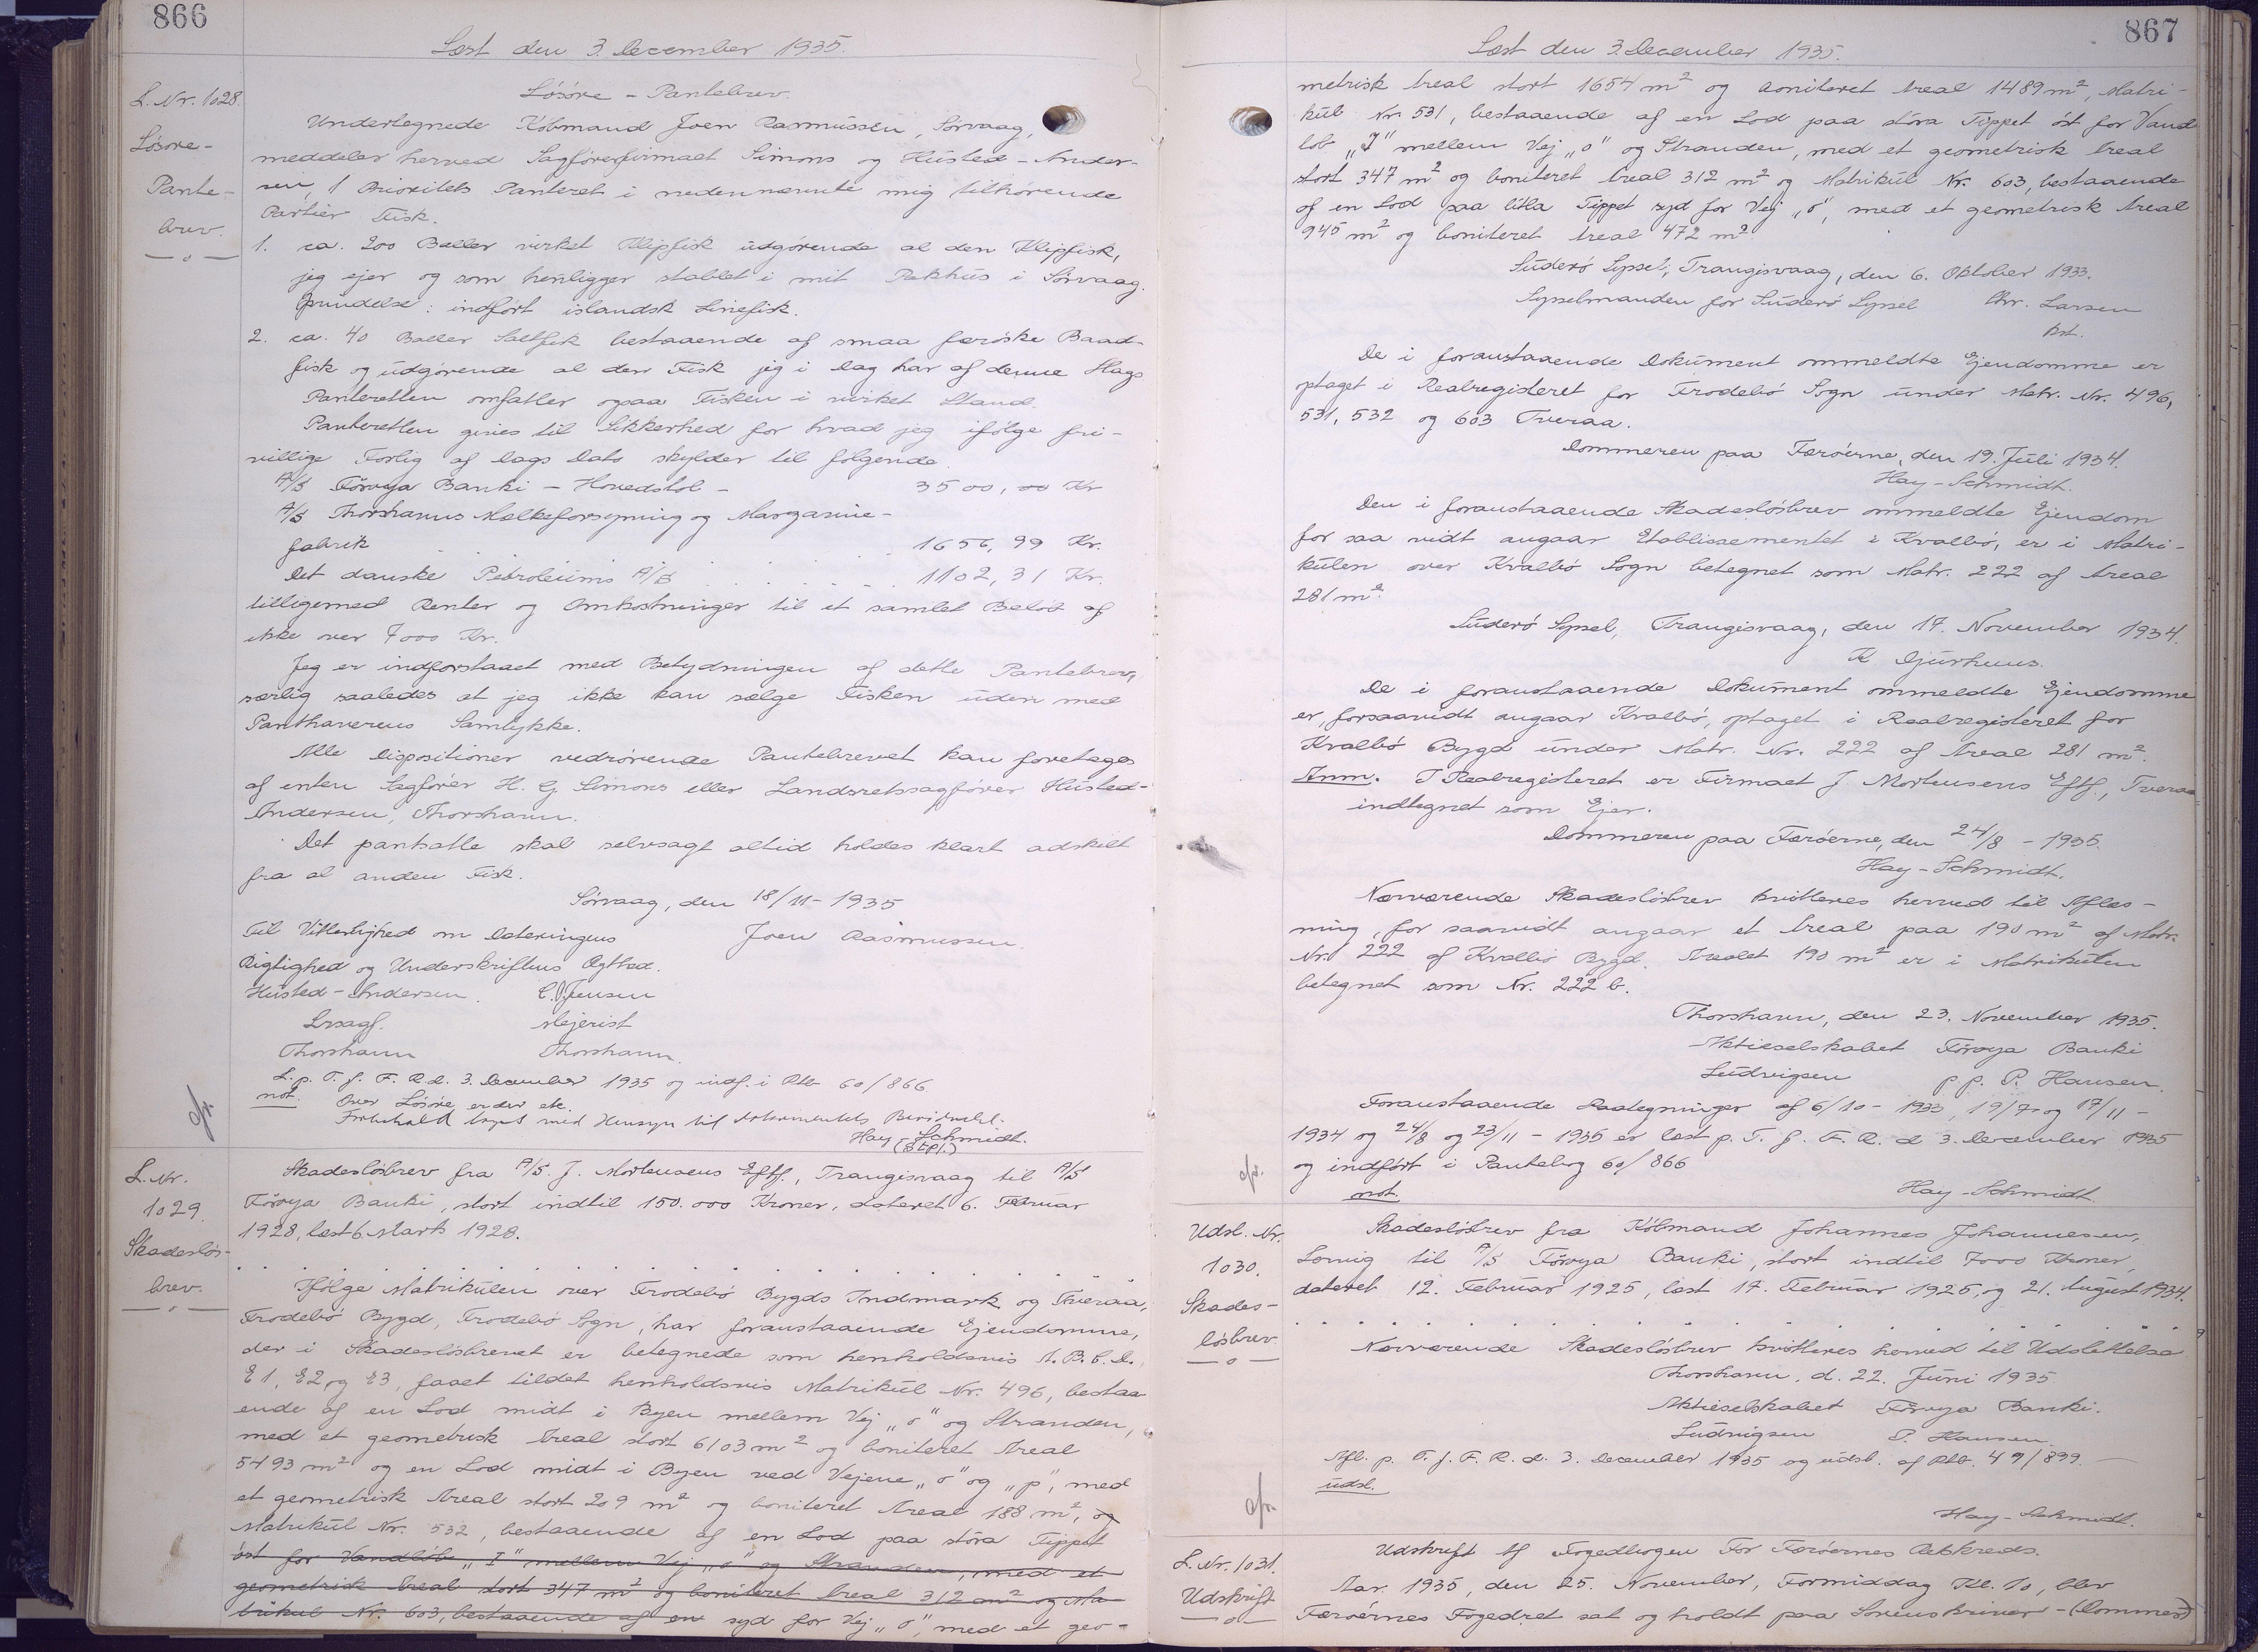 866
Læst den 3. December 1935.
L. Nr. 1028.
Løsøre-
Pante-
brev.
Løsøre - Pantebrev.
Undertegnede Købmand Joen Rasmussen, Sørvaag,
meddeler herved Sagførerfirmaet Simons og Husted-Ander-
sen, 1 Prioritets Panteret i nedennævnte mig tilhørende
Partier Fisk.
1. ca. 200 Baller virket Klipfisk udgørende al den Klipfisk,
jeg ejer og som henligger stablet i mit Pakhus i Sørvaag.
Oprindelse: indført islandsk Linefisk.
2. ca. 40 Baller Saltfisk bestaaende af smaa færøske Baad-
fisk og udgørende al den Fisk jeg i Dag har af denne Slags
Panteretten omfatter ogsaa Fisken i virket Stand.
Panteretten gives til Sikkerhed for hvad jeg ifølge fri-
villige Forlig af Dags Dato skylder til følgende
A/S Føroya Banki - Hovedstol - 3500,00 Kr
A/S Thorshavns Mælkeforsyning og Margarine-
fabrik 1656,99 Kr.
Det danske Petroleums A/S 1102,31 Kr.
tilligemed Renter og Omkostninger til et samlet Beløb af
ikke over 7000 Kr.
Jeg er indforstaaet med Betydningen af dette Pantebrev,
særlig saaledes at jeg ikke kan sælge Fisken uden med
Panthaverens Samtykke.
Alle Dispositioner vedrørende Pantebrevet kan foretages
af enten Sagfører H. G. Simons eller Landsretssagfører Husted-
Andersen, Thorshavn.
Det pantsatte skal selvsagt altid holdes klart adskilt
fra al anden Fisk.
Sørvaag, den 18/11 - 1935
Til Vitterlighed om Dateringens Joen Rasmussen.
Rigtighed og Underskriftens Ægthed.
Husted-Andersen. C. Jensen
Lrsagf. Mejerist
Thorshavn Thorshavn.
L. p. T. f. F. R. d. 3. December 1935 og indf. i Ptb 60/866
not. Over Løsøre er der etc.
Forbehold taget med Hensyn til Dokumentets
Hay-Schmidt.
(Stpl.)
L. Nr.
1029.
Skadesløs-
brev.
Skadesløsbrev fra A/S. J. Mortensens Eftf., Trangisvaag til A/S
Føroya Banki, stort indtil 150.000 Kroner, dateret 6. Februar
1928, læst 6. Marts 1928.
Ifølge Matrikulen over Frodebø Bygds Indmark og Tveraa,
Frodebø Bygd, Frodebø Sogn, har foranstaaende Ejendomme,
der i Skadesløsbrevet er betegnede som henholdsvis A. B. C. D.
E1, E2 og E3, faaet tildelt henholdsvis Matrikul Nr. 496, bestaa-
ende af en Lod midt i Byen mellem Vej „o“ og Stranden,
med et geometrisk Areal stort 6103 m² og boniteret Areal
5493 m² og en Lod midt i Byen ved Vejene „o“ og „p“, med
et geometrisk Areal stort 209 m² og boniteret Areal 188 m², og
Matrikul Nr. 532, bestaaende af en Lod paa stóra Tippet
øst for Vandløb „I“ mellem Vej „o“ og Stranden, med et
geometrisk Areal stort 347 m² og boniteret Areal 312 m² og Ma-
trikul Nr. 603, bestaaende af en syd for Vej „o“, med et geo-
867
Læst den 3. December 1935.
metrisk Areal stort 1654 m² og boniteret Areal 1489 m², Matri-
kul Nr. 531, bestaaende af en Lod paa stóra Tippet øst for Vand
løb „I“ mellem Vej „o“ og Stranden, med et geometrisk Areal
stort 347 m² og boniteret Areal 312 m² og Matrikul Nr. 603, bestaaende
af en Lod paa litla Tippet syd for Vej „o“, med et geometrisk Areal
945 m² og boniteret Areal 472 m².
Suderø Syssel, Trangisvaag, den 6. Oktober 1933.
Sysselmanden for Suderø Syssel Chr. Larsen
kst.
De i foranstaaende Dokument ommeldte Ejendomme er
optaget i Realregisteret for Frodebø Sogn under Matr. Nr. 496,
531, 532 og 603 Tveraa.
Dommeren paa Færøerne, den 19. Juli 1934.
Hay-Schmidt.
Den i foranstaaende Skadesløsbrev ommeldte Ejendom
for saa vidt angaar Etablissementet i Kvalbø, er i Matri-
kulen over Kvalbø Sogn betegnet som Matr. 222 af Areal
281 m².
Suderø Syssel, Trangisvaag, den 17. November 1934.
K. Djurhuus.
De i foranstaaende Dokument ommeldte Ejendomme
er, forsaavidt angaar Kvalbø, optaget i Realregisteret for
Kvalbø Bygd under Matr. Nr. 222 af Areal 281 m².
Anm. I Realregisteret er Firmaet J. Mortensens Eftf., Tveraa
indtegnet som Ejer.
Dommeren paa Færøerne, den 24/8 - 1935.
Hay-Schmidt.
Nærværende Skadesløsbrev kvitteres herved til Aflæs-
ning, for saavidt angaar et Areal paa 190 m² af Matr.
Nr. 222 af Kvalbø Bygd. Arealet 190 m² er i Matrikulen
betegnet som Nr. 222 b.
Thorshavn, den 23. November 1935.
Aktieselskabet Føroya Banki
Ludvigsen p p. P. Hansen.
Foranstaaende Paategninger af 6/10 - 1933, 19/7 og 17/11 -
1934 og 24/8 og 23/11 - 1935 er læst p. T. f. F. R. d 3. December 1935
og indført i Pantebog 60/866
not.
Hay-Schmidt.
Udsl. Nr.
1030.
Skades-
løsbrev.
Skadesløsbrev fra Købmand Johannes Johannesen,
Lorvig til A/S Føroya Banki, stort indtil 7000 Kroner,
dateret 12. Februar 1925, læst 17. Februar 1925, og 21. August 1934.
Nærværende Skadesløsbrev kvitteres herved til Udslettelse
Thorshavn, d. 22. Juni 1935
Aktieselskabet Føroya Banki.
Ludvigsen P. Hansen.
Afl. p. T. f. F. R. d. 3. December 1935 og udsl. af Ptb. 49/899.
udsl.
Hay-Schmidt.
L. Nr. 1031.
Udskrift
Udskrift af Fogedbogen for Færøernes Retskreds.
Aar 1935, den 25. November, Formiddag Kl. 10, blev
Færøernes Fogedret sat og holdt paa Sorenskriver-(Dommer)